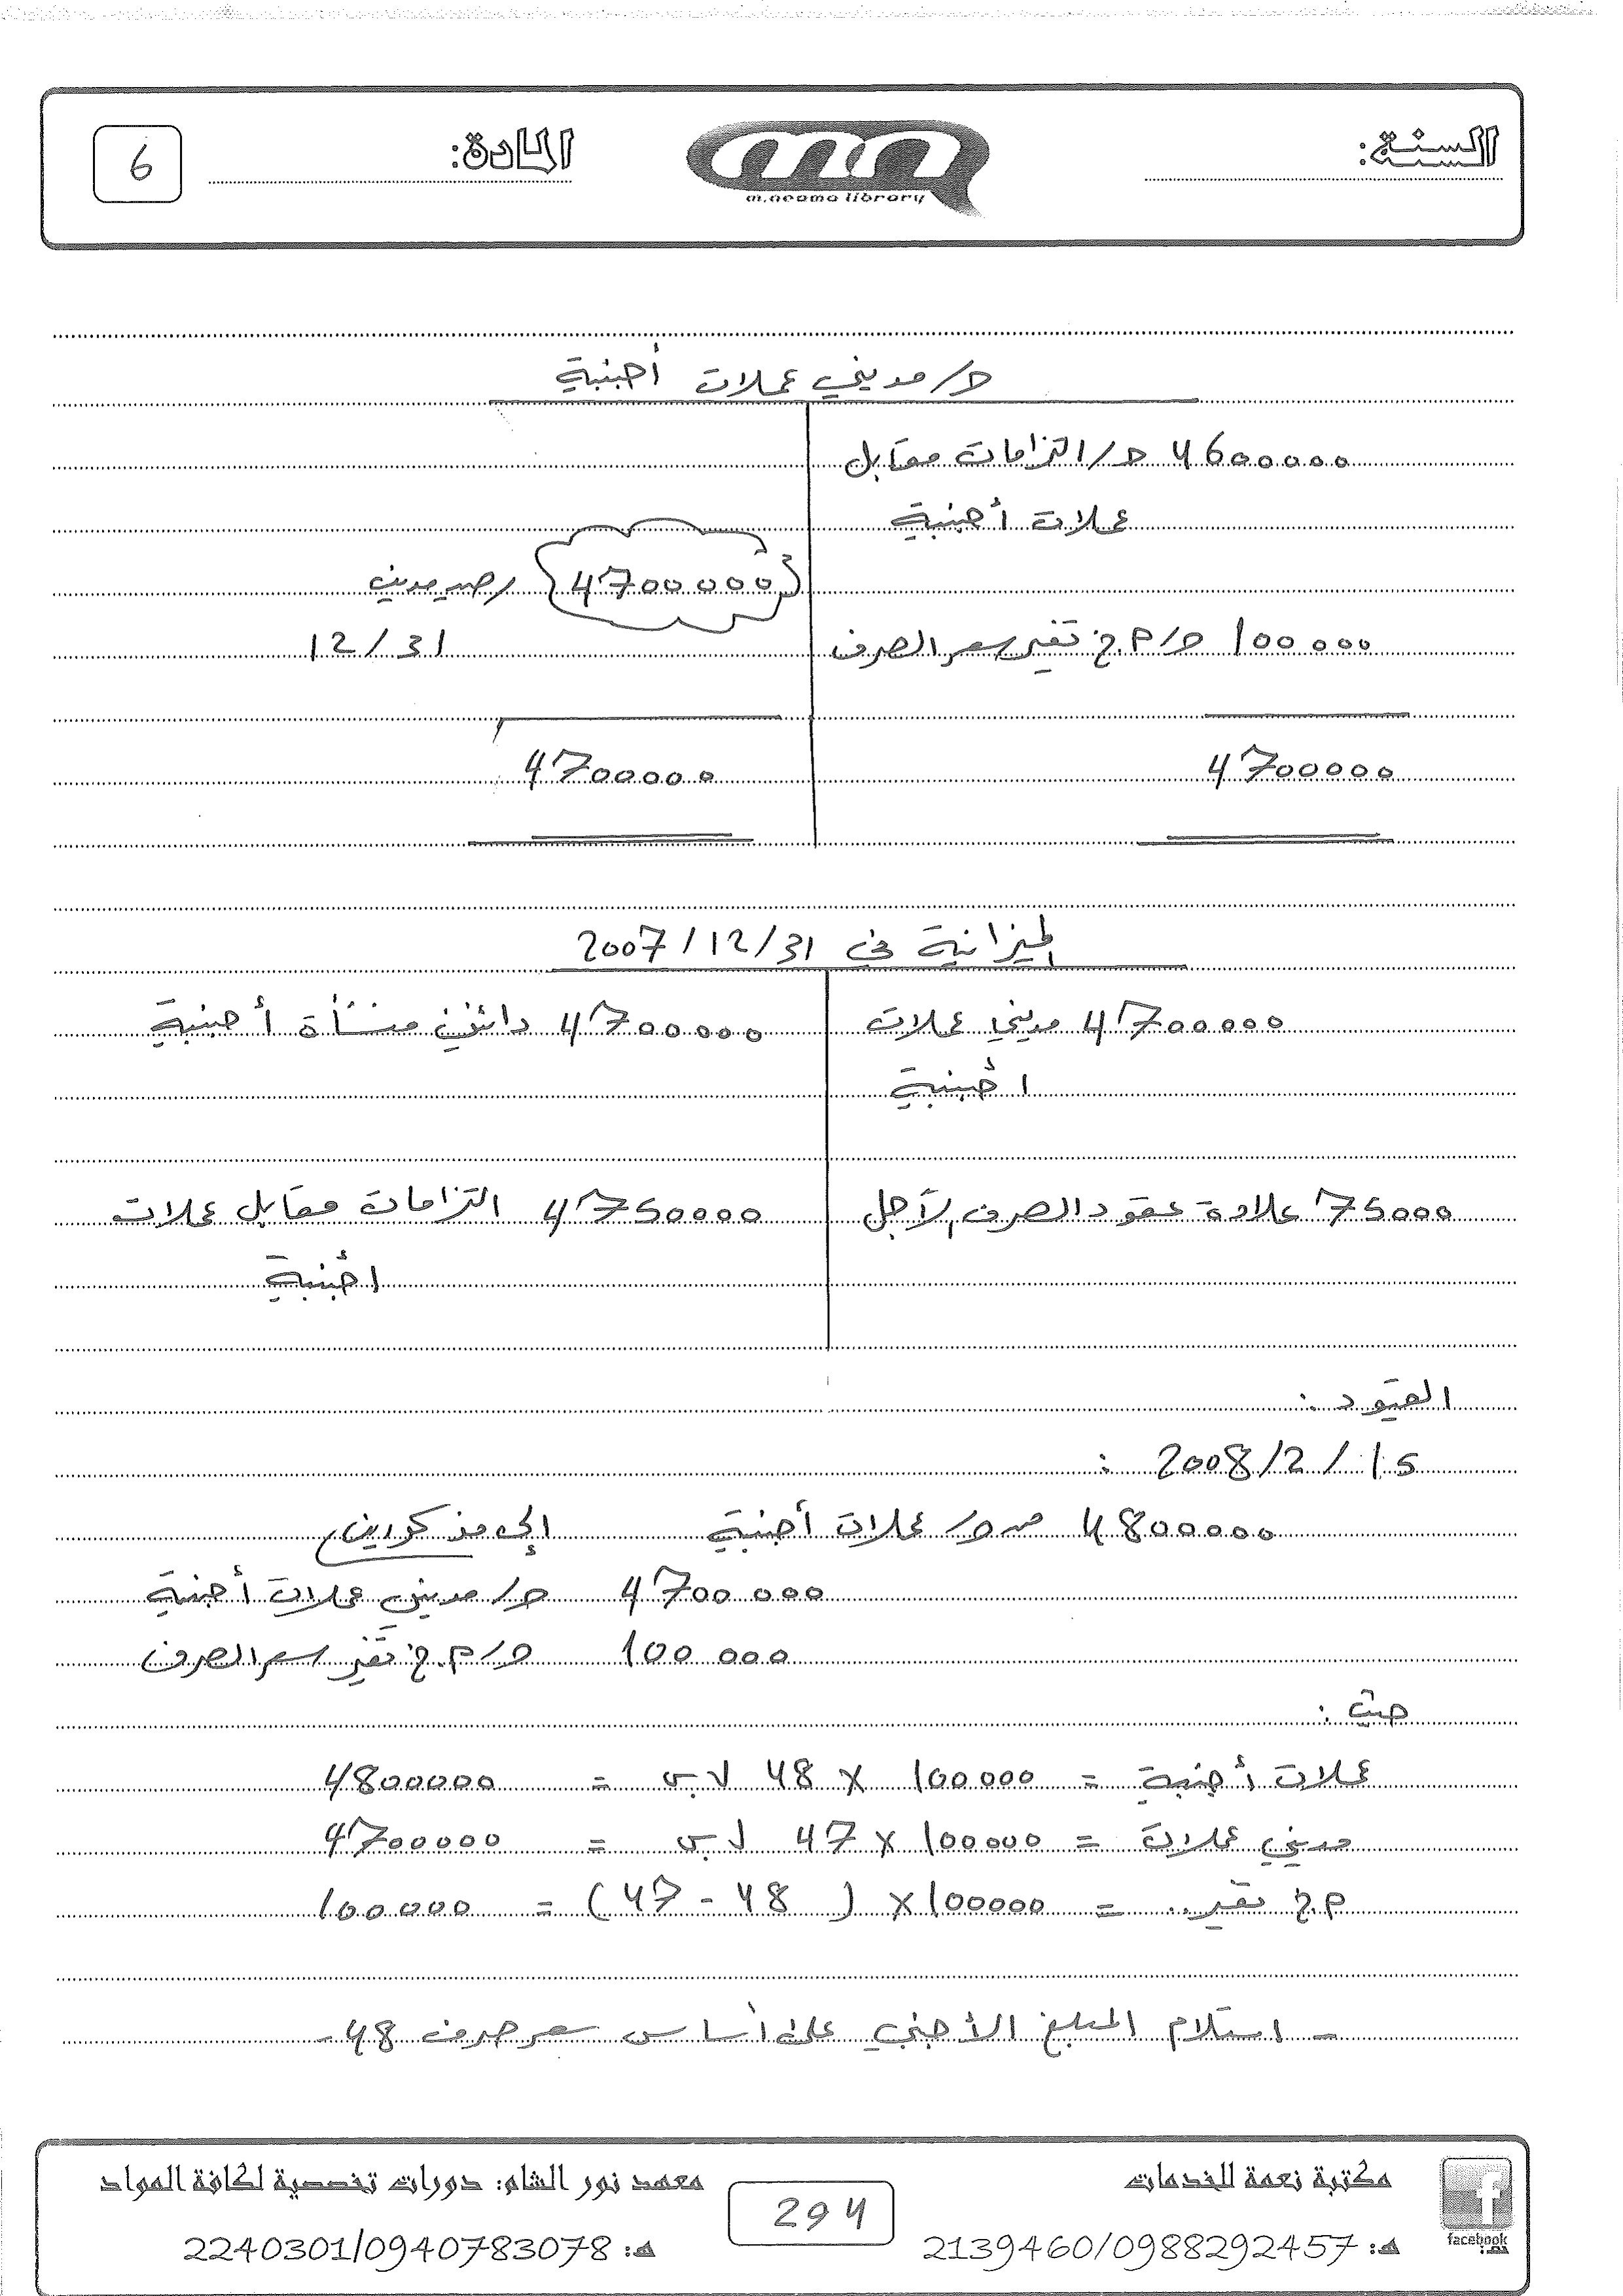 السنة:
m.neama library
المادة:
6
ح/ مديني عملات أجنبية
4600000 ح/ التزامات مقابل
عملات أجنبية
4700000 رصيد مدين
100000 ح/ م.خ تغير سعر الصرف
12/31
4700000 4700000
الميزانية في 2007/12/31
4700000 مديني عملات
أجنبية
4700000 دائني منشأة أجنبية
75000 علاوة عقود الصرف الآجل
4750000 التزامات مقابل عملات
أجنبية
القيود:
2008/2/15:
4800000 من ح/ عملات أجنبية إلى مذكورين
4700000 ح/ مديني عملات أجنبية
100000 ح/ م.خ تغير سعر الصرف
حيث:
عملات أجنبية = 100000 × 48 ل.س = 4800000
مديني عملات = 100000 × 47 ل.س = 4700000
م.خ تغير.. = 100000 × (48 - 47) = 100000
- استلام المبلغ الأجنبي على أساس سعر صرف 48-
facebook
مكتبة نعمة للخدمات
هـ: 2139460/0988292457
294
معهد نور الشام: دورات تخصصية لكافة المواد
هـ: 2240301/0940783078